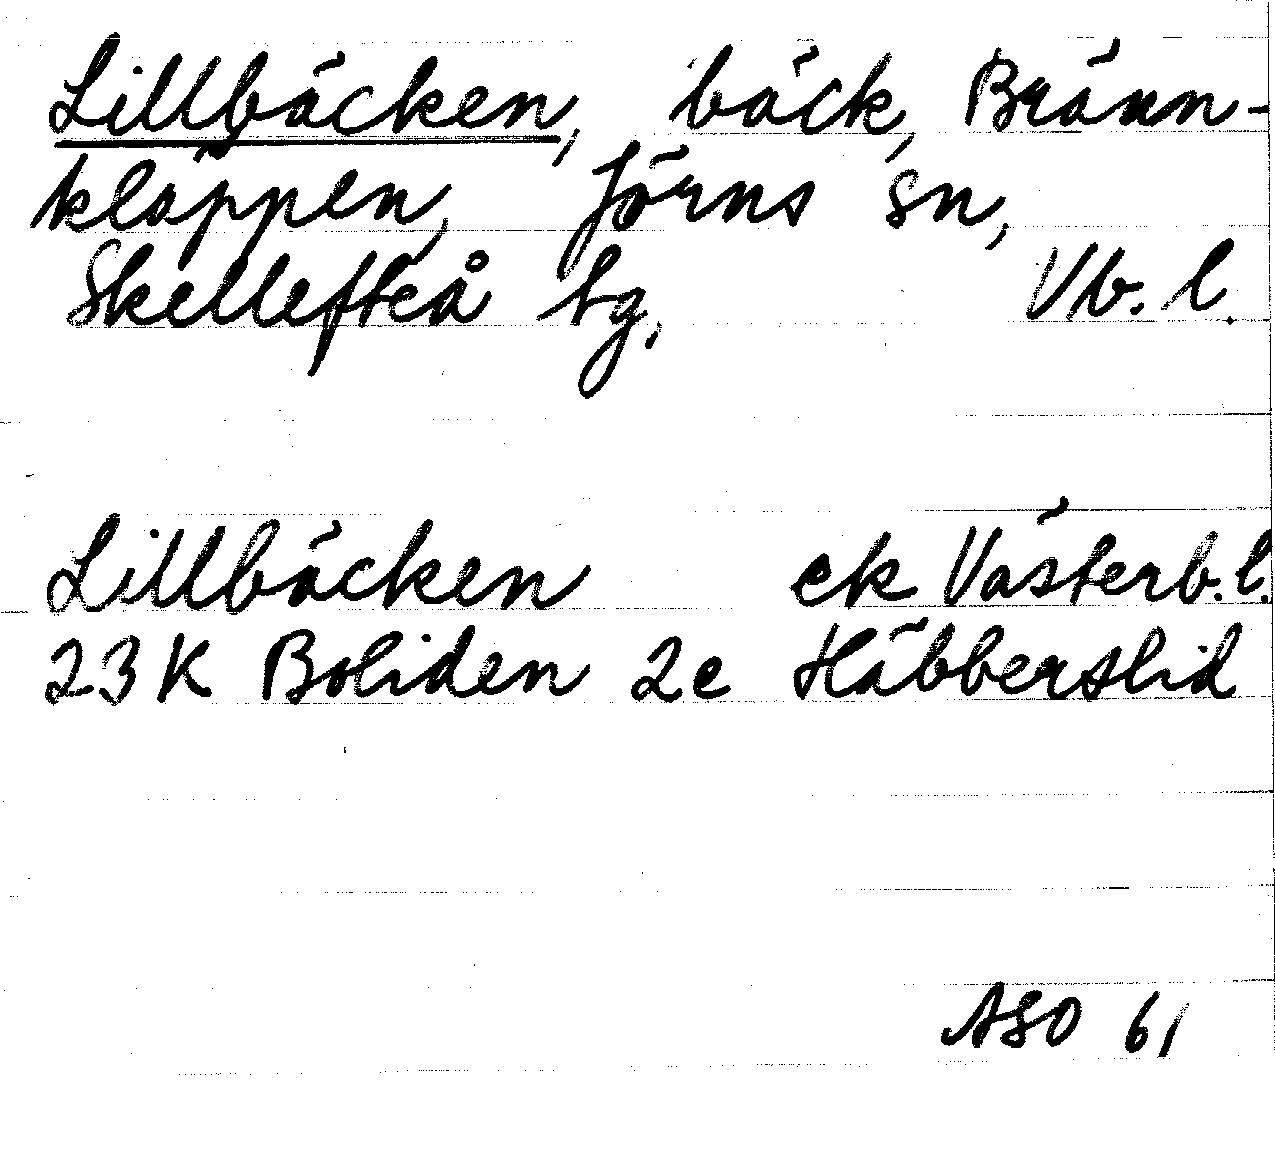 Lillbäcken, bäck, Bränn-
kläppen, Jörns sn,
Skellefteå tg, Vb. l.
Lillbäcken ek Västerb. l.
23 K Boliden 2e Häbberslid
ASO 61